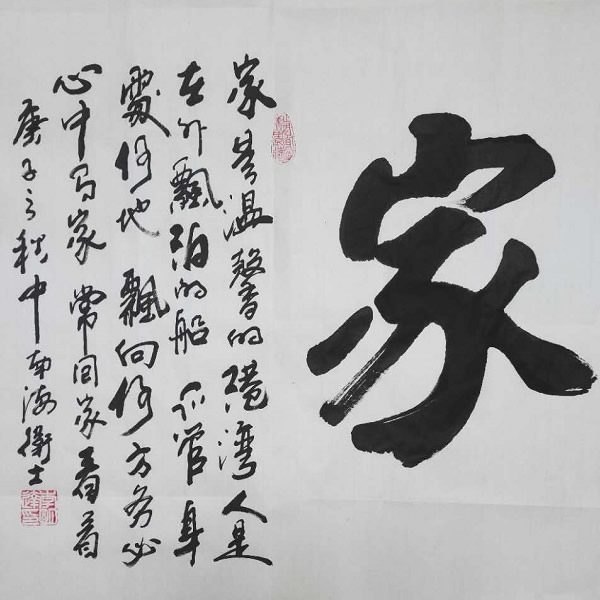 家
家是温馨的港湾人是
在外飘泊的船不管身
处何地飘向何方务必
心中有家常回家看看
庚子之秋中南海卫士